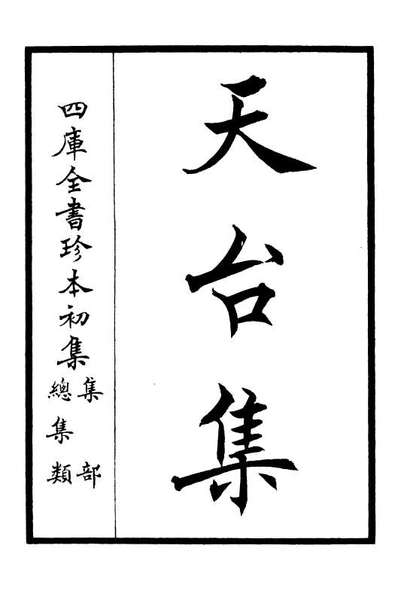 天台集
四庫全書珍本初集
集部
總集類